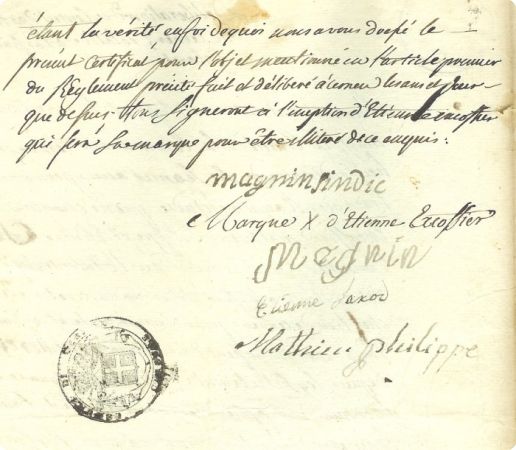 étant la vérité en foi de quoi nous avons dressé le
présent Certificat pour l'objet mentionné en l'article premier
du Réglement précité fait et délibéré à les an et jour
que dessus. Nous Signeront à l'exception d'Etienne excoffier
qui fera Sa marque pour être illitéré de ce enquis :
magnin sindic
Marque X d'Etienne Excoffier
Magnin
Etienne
Mathieu philippe